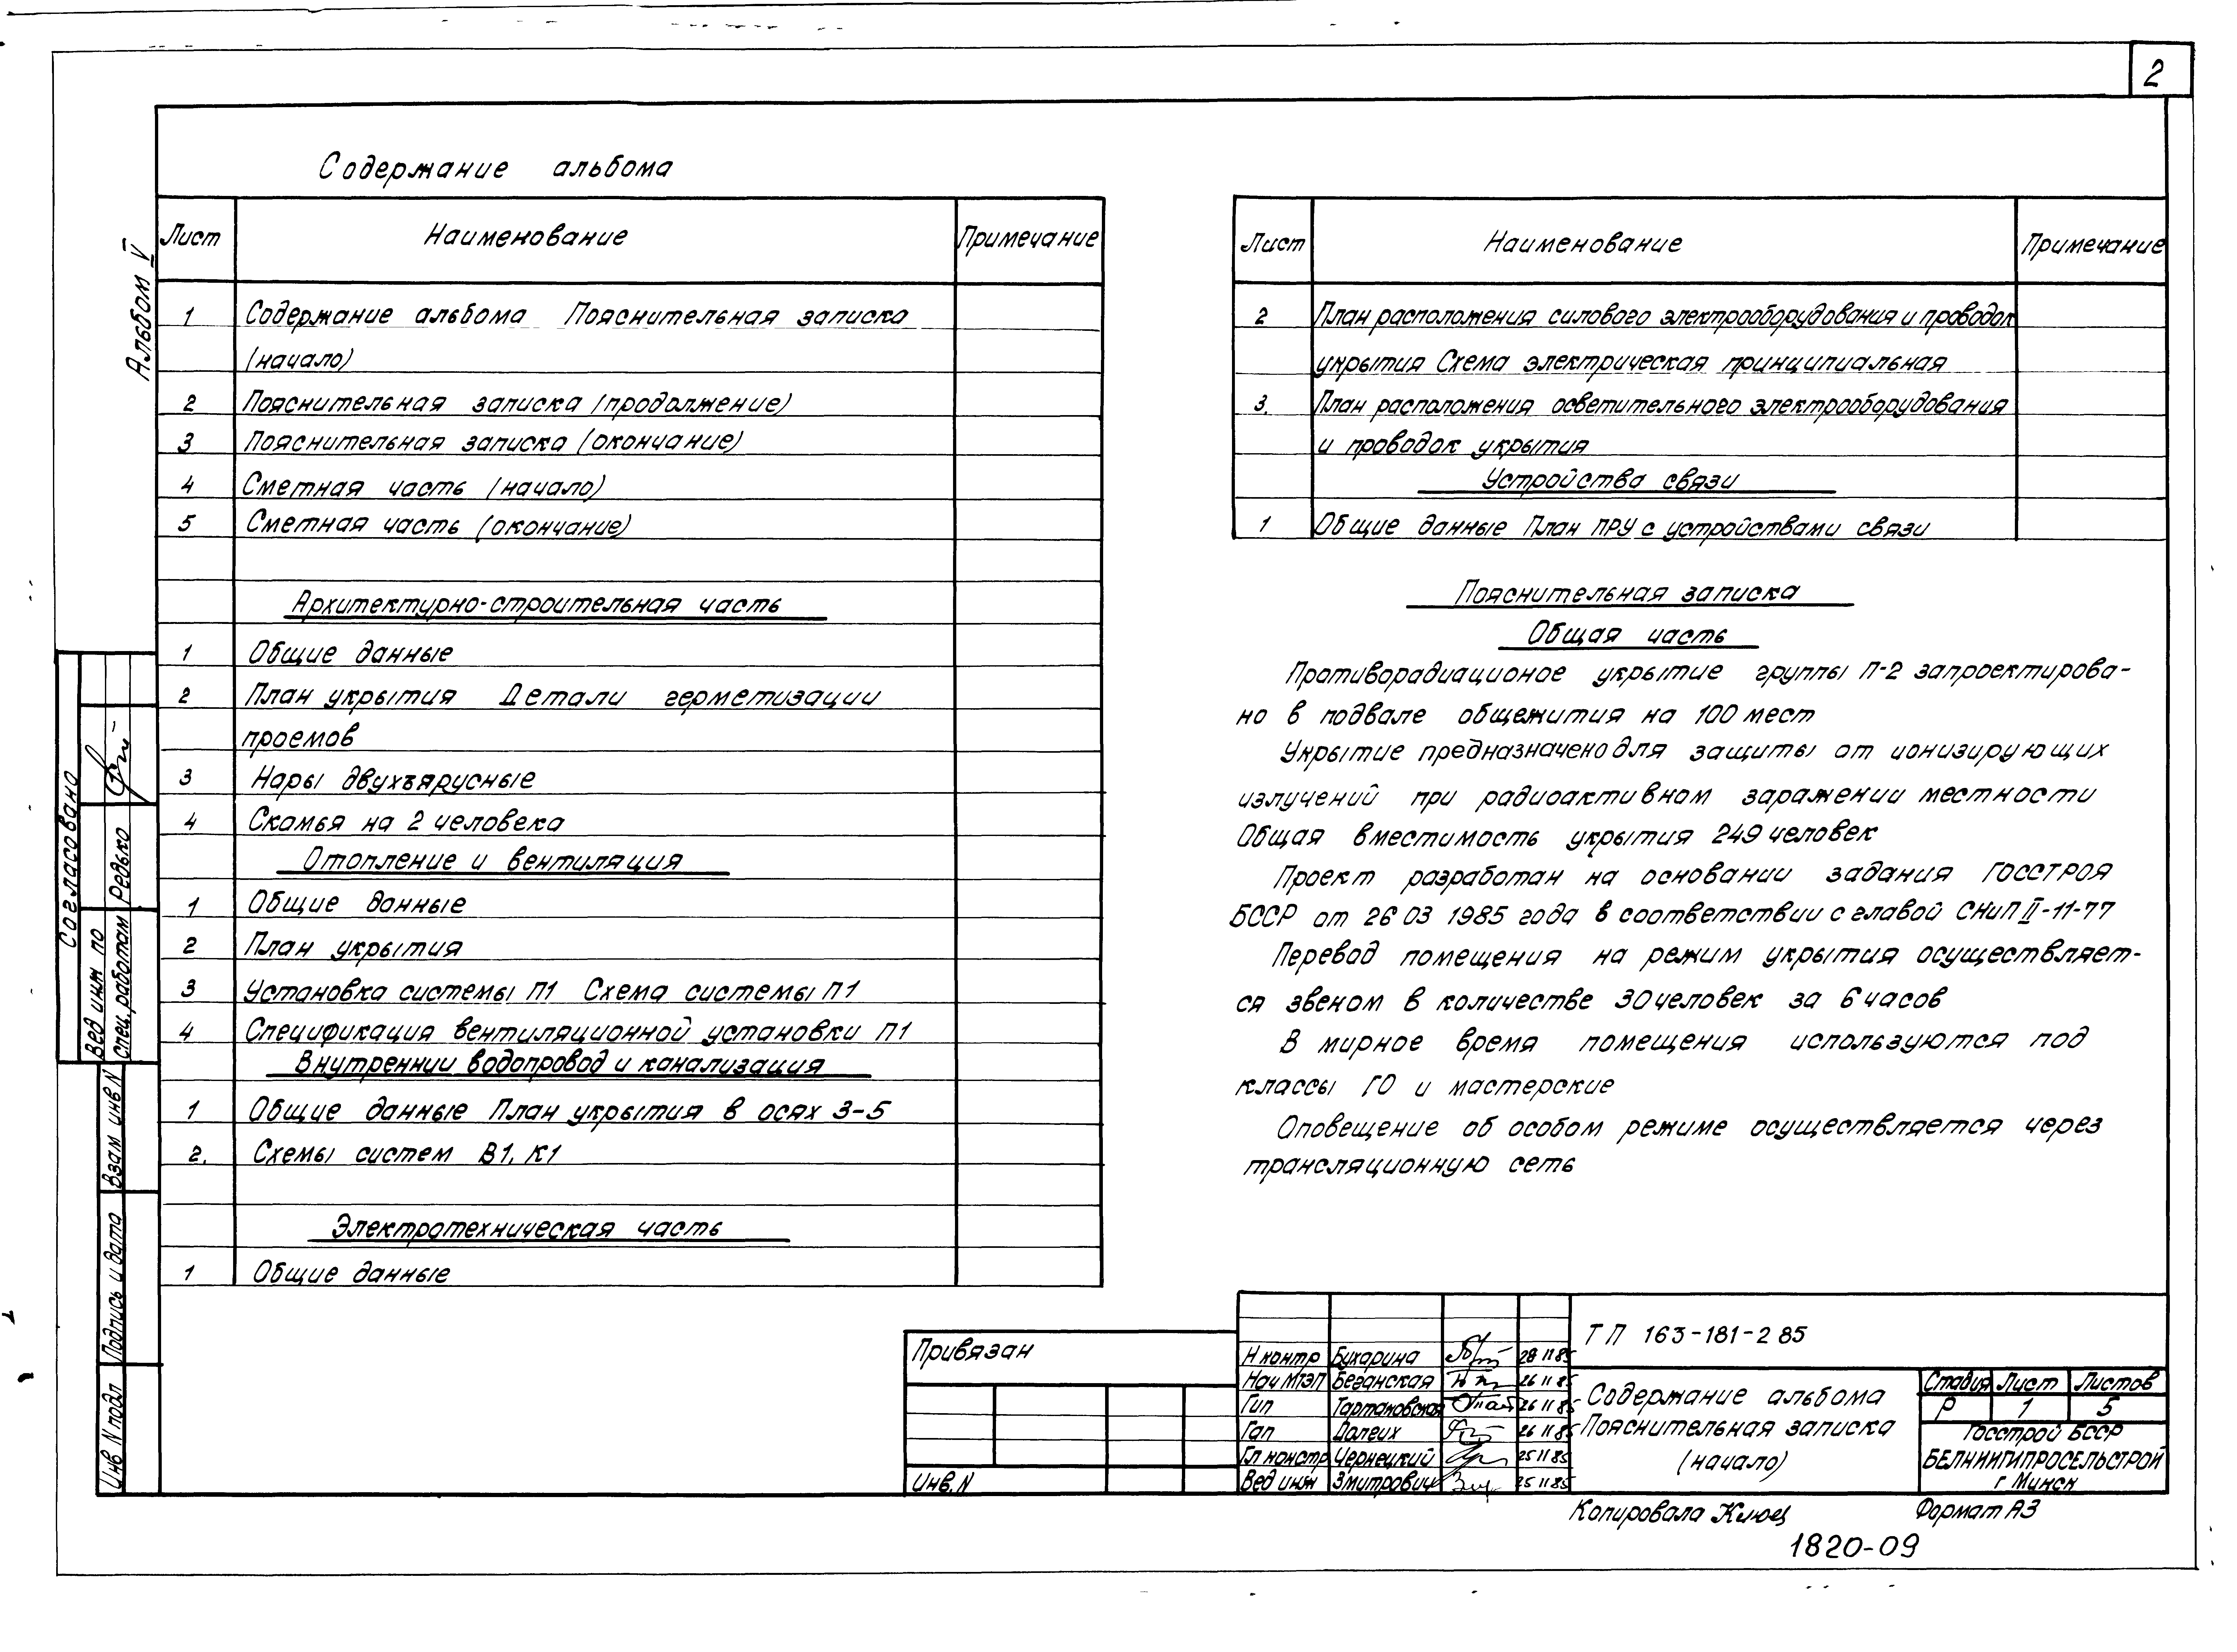 2
Содержание альбома
Альбом V
Лист Наименование Примечание
1 Содержание альбома Пояснительная записка
(начало)
2 Пояснительная записка (продолжение)
3 Пояснительная записка (окончание)
4 Сметная часть (начало)
5 Сметная часть (окончание)
Архитектурно-строительная часть
1 Общие данные
2 План укрытия Детали герметизации
проемов
3 Нары двухъярусные
4 Скамья на 2 человека
Отопление и вентиляция
1 Общие данные
2 План укрытия
3 Установка системы П1 Схема системы П1
4 Спецификация вентиляционной установки П1
Внутреннии водопровод и канализация
1 Общие данные План укрытия в осях 3-5
2. Схемы систем В1, К1
Электротехническая часть
1 Общие данные
Лист Наименование Примечание
2 План расположения силового электрооборудования и проводок
укрытия Схема электрическая принципиальная
3. План расположения осветительного электрооборудования
и проводок укрытия
Устройства связи
1 Общие данные План ПРУ с устройствами связи
Пояснительная записка
Общая часть
Противорадиационое укрытие группы П-2 запроектирова-
но в подвале общежития на 100 мест
Укрытие предназначено для защиты от ионизирующих
излучений при радиоактивном заражении местности
Общая вместимость укрытия 249 человек
Проект разработан на основании задания Госстроя
БССР от 26 03 1985 года в соответствии с главой СНиП II-11-77
Перевод помещения на режим укрытия осуществляет-
ся звеном в количестве 30 человек за 6 часов
В мирное время помещения используются под
классы ГО и мастерские
Оповещение об особом режиме осуществляется через
трансляционную сеть
Согласовано
Вед инж по
спец. работам Редько
Взам инв N
Подпись и дата
Инв N подл
Привязан
Инв. N
Н контр Бухарина 28 11 85
Нач МТЭП Беганская 26 11 85
Гип Тартаковская 26 11 85
Гап Далеих 26 11 85
Гл констр Чернецкий 25 11 85
Вед инж Змитрович 25 11 85
ТП 163-181-2 85
Содержание альбома
Пояснительная записка
(начало)
Стадия Лист Листов
Р 1 5
Госстрой БССР
БЕЛНИИГИПРОСЕЛЬСТРОЙ
г Минск
Копировала Клюец Формат А3
1820-09